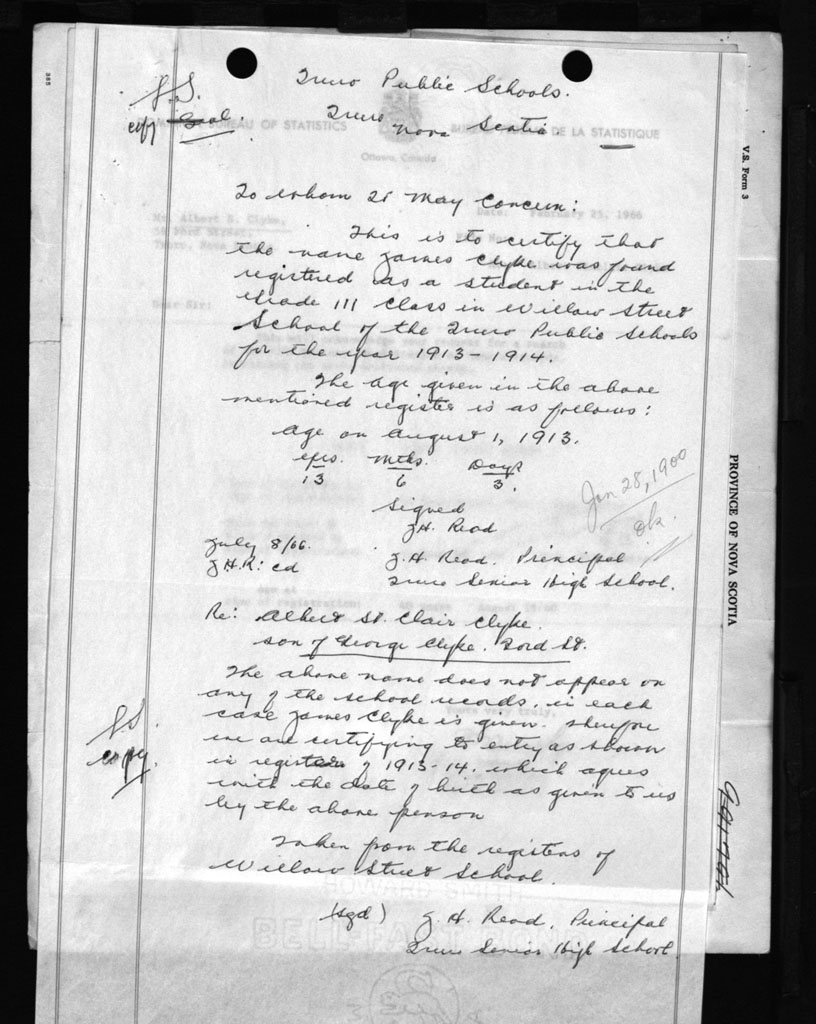 Truro Public Schools.
J.S.
copy
Truro
Nova Scotia
BUREAU OF STATISTICS
DE LA STATISTIQUE
Ottawa, Canada
V.S. Form 3
To whom It May Concern:
Mr. Albert S. Clyke,
Date: February 25, 1966
This is to certify that
the name James Clyke was found
registered as a student in the
Grade III Class in Willow Street
School of the Truro Public Schools
for the year 1913-1914.
Dear Sir:
The age given in the above
mentioned register is as follows:
age on August 1, 1913.
yrs. Mths. Days
13 6 3.
Jan 28, 1900
ok.
Signed
J.H. Read
July 8/66.
J.H.R: cd
J.H. Read. Principal
Truro Senior High School.
PROVINCE OF NOVA SCOTIA
Re: Albert St. Clair Clyke.
son of George Clyke. Ford St.
The above name does not appear on
any of the school records, in each
case James Clyke is given. Therefore
we are certifying to entry as shown
in register of 1913-14, which agrees
with the date of birth as given to us
by the above person
J.S.
copy.
Taken from the registers of
Willow Street School.
(sgd) J. H. Read, Principal
Truro Senior High School.
HOWARD SMITH
BELL-FAST BOND